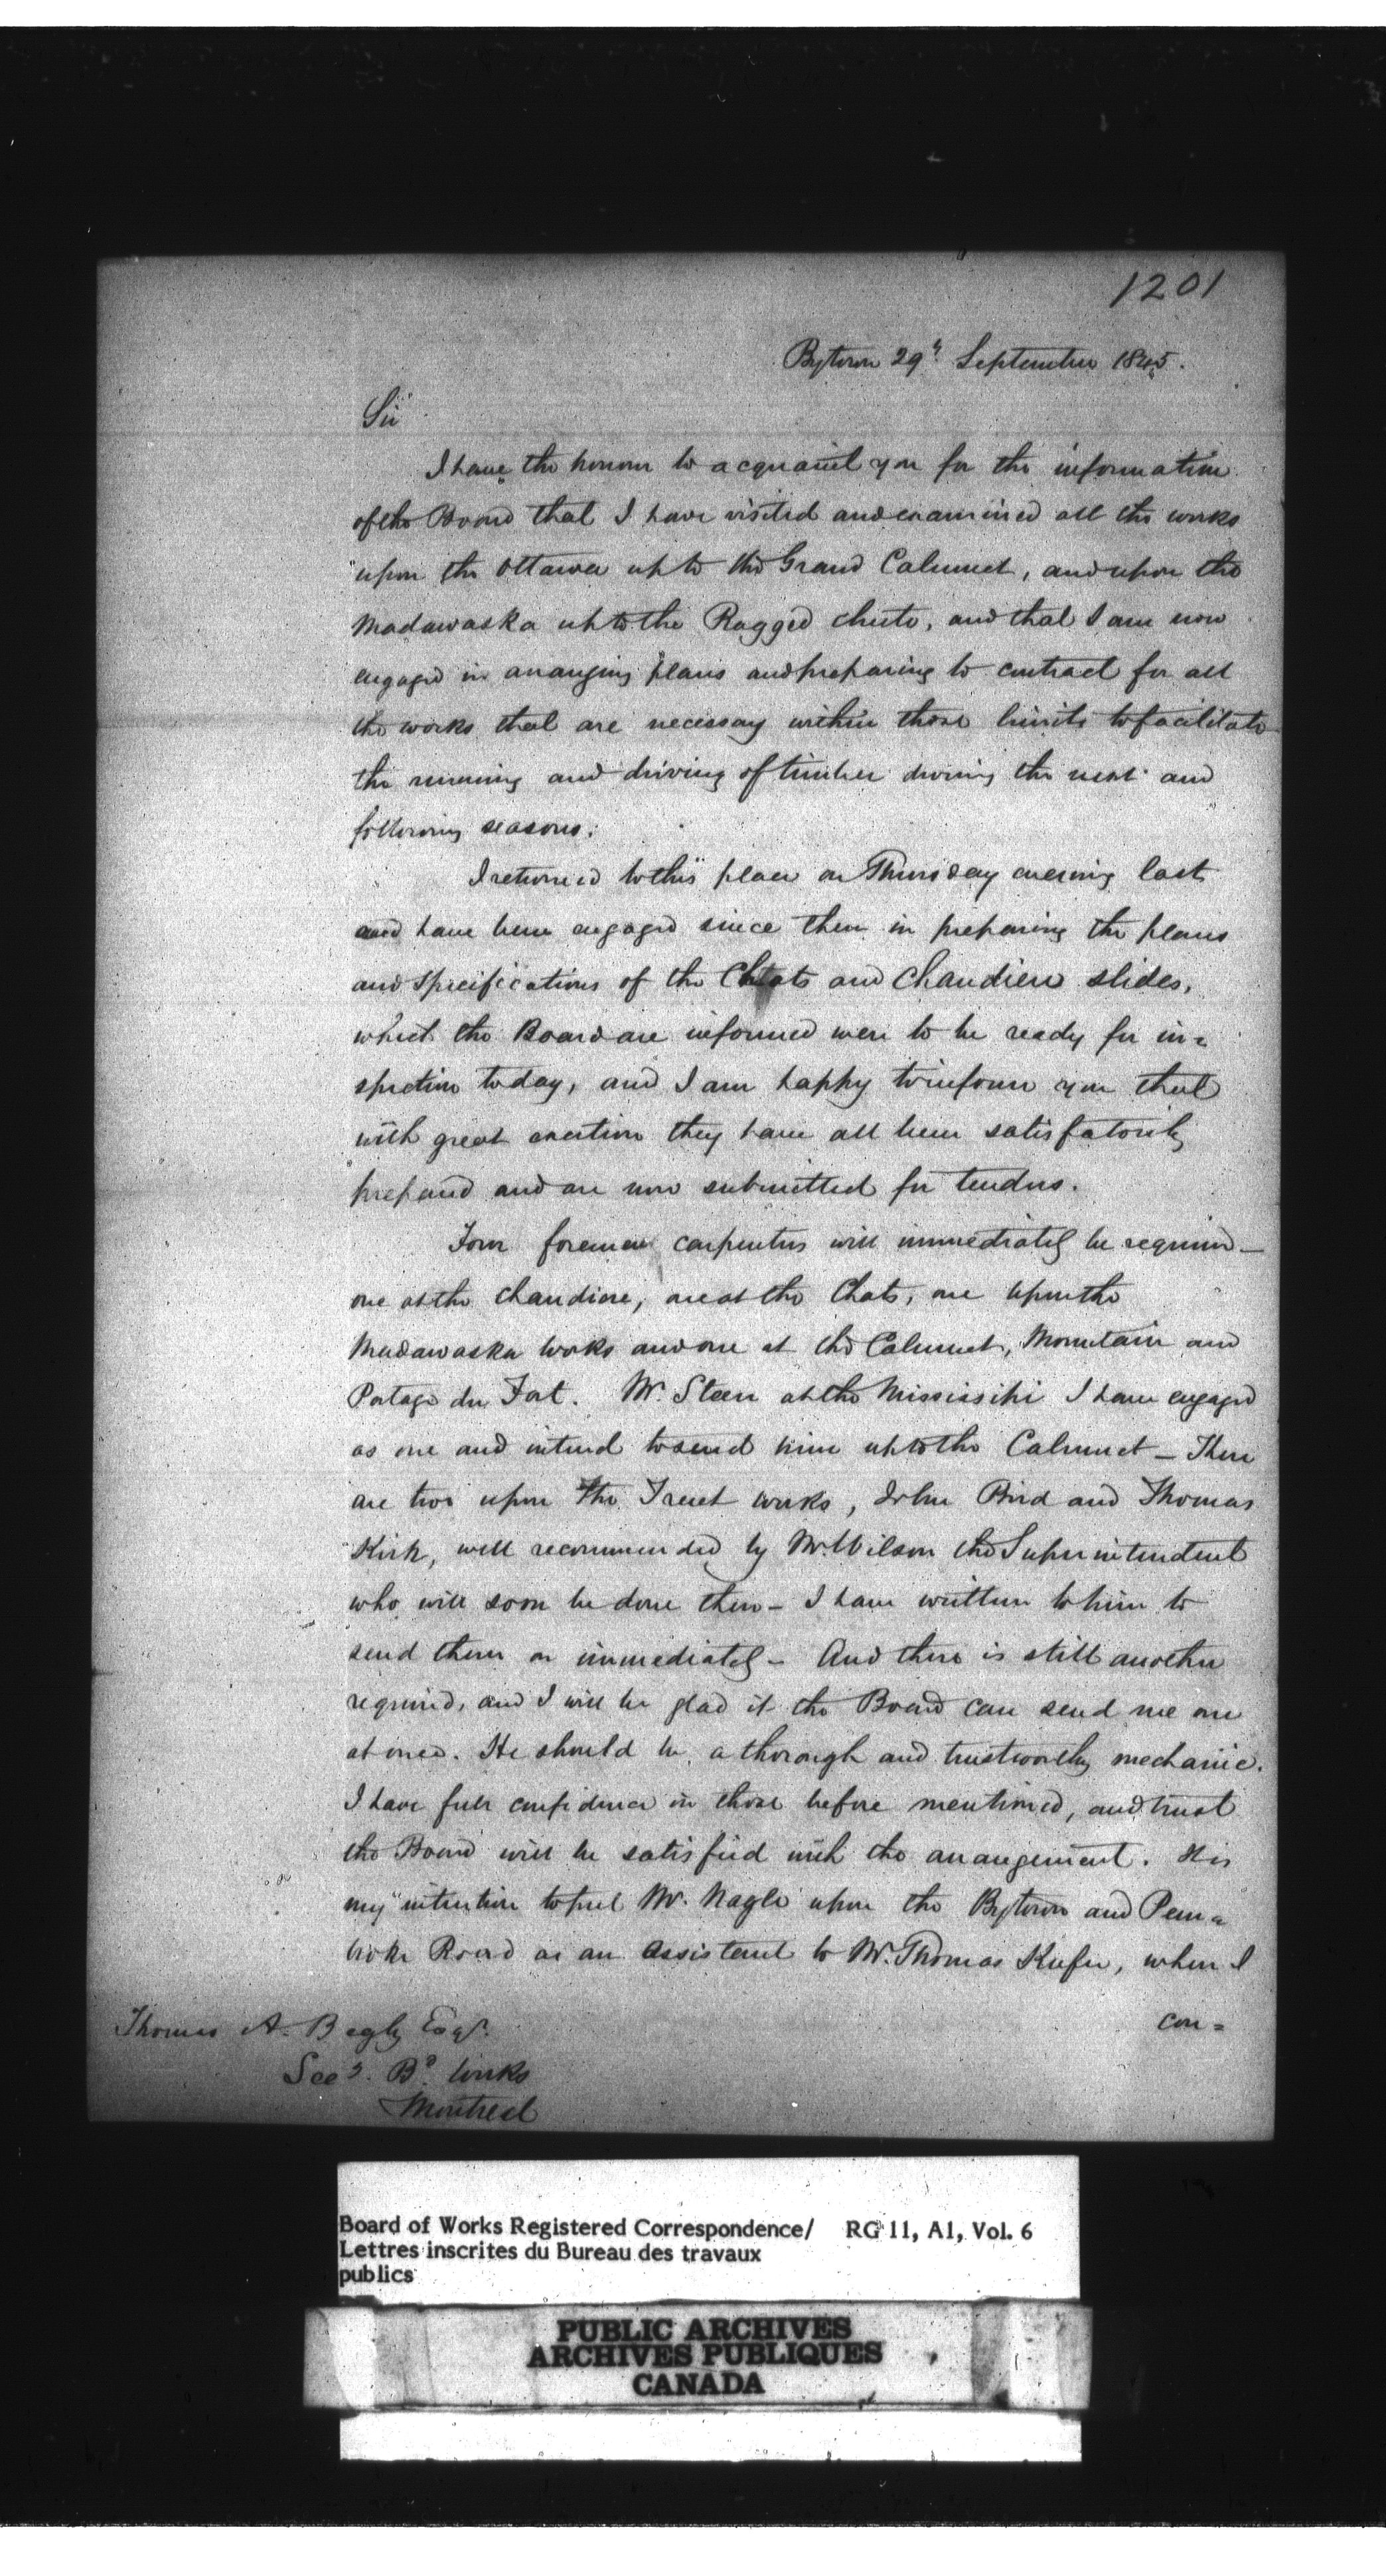 1201
Bytown 29th September 1845.
Sir
I have the honour to acquaint you for the information
of the Board that I have visited and examined all the works
upon the Ottawa up to the Grand Calumet, and upon the
Madawaska up to the Ragged chute, and that I am now
engaged in arranging plans and preparing to contract for all
the works that are necessary within those limits to facilitate
the running and driving of timber during the next and
following seasons.
I returned to this place on Thursday evening last
and have been engaged since then in preparing the plans
and specifications of the Chats and Chaudiere slides,
which the Board are informed were to be ready for in=
spection today, and I am happy to inform you that
with great exertion they have all been satisfatorily
prepared and are now submitted for tenders.
Four foremen carpenters will immediately be required –
one at the Chaudiere, one at the Chats, one upon the
Madawaska works and one at the Calumet, Mountain and
Portage du Fort. Mr. Steen at the Mississipi I have engaged
as one and intend to send him up to the Calumet – There
are two upon the Trent works, John Bird and Thomas
Kirk, well recommended by Mr. Wilson the Superintendent
who will soon be done there – I have written to him to
send them on immediately – And there is still another
required, and I will be glad if the Board can send me one
at once. He should be a thorough and trustworthy mechanic.
I have full confidence in those before mentioned, and trust
the Board will be satisfied with the arrangement. It is
my intention to put Mr. Nagle upon the Bytown and Pem=
broke Road as an assistant to Mr. Thomas Keefer, when I
con=
Thomas A. Begly Esqr.
Secy. Bd. Works
Montreal
Board of Works Registered Correspondence/ RG 11, A1, Vol. 6
Lettres inscrites du Bureau des travaux
publics
PUBLIC ARCHIVES
ARCHIVES PUBLIQUES
CANADA